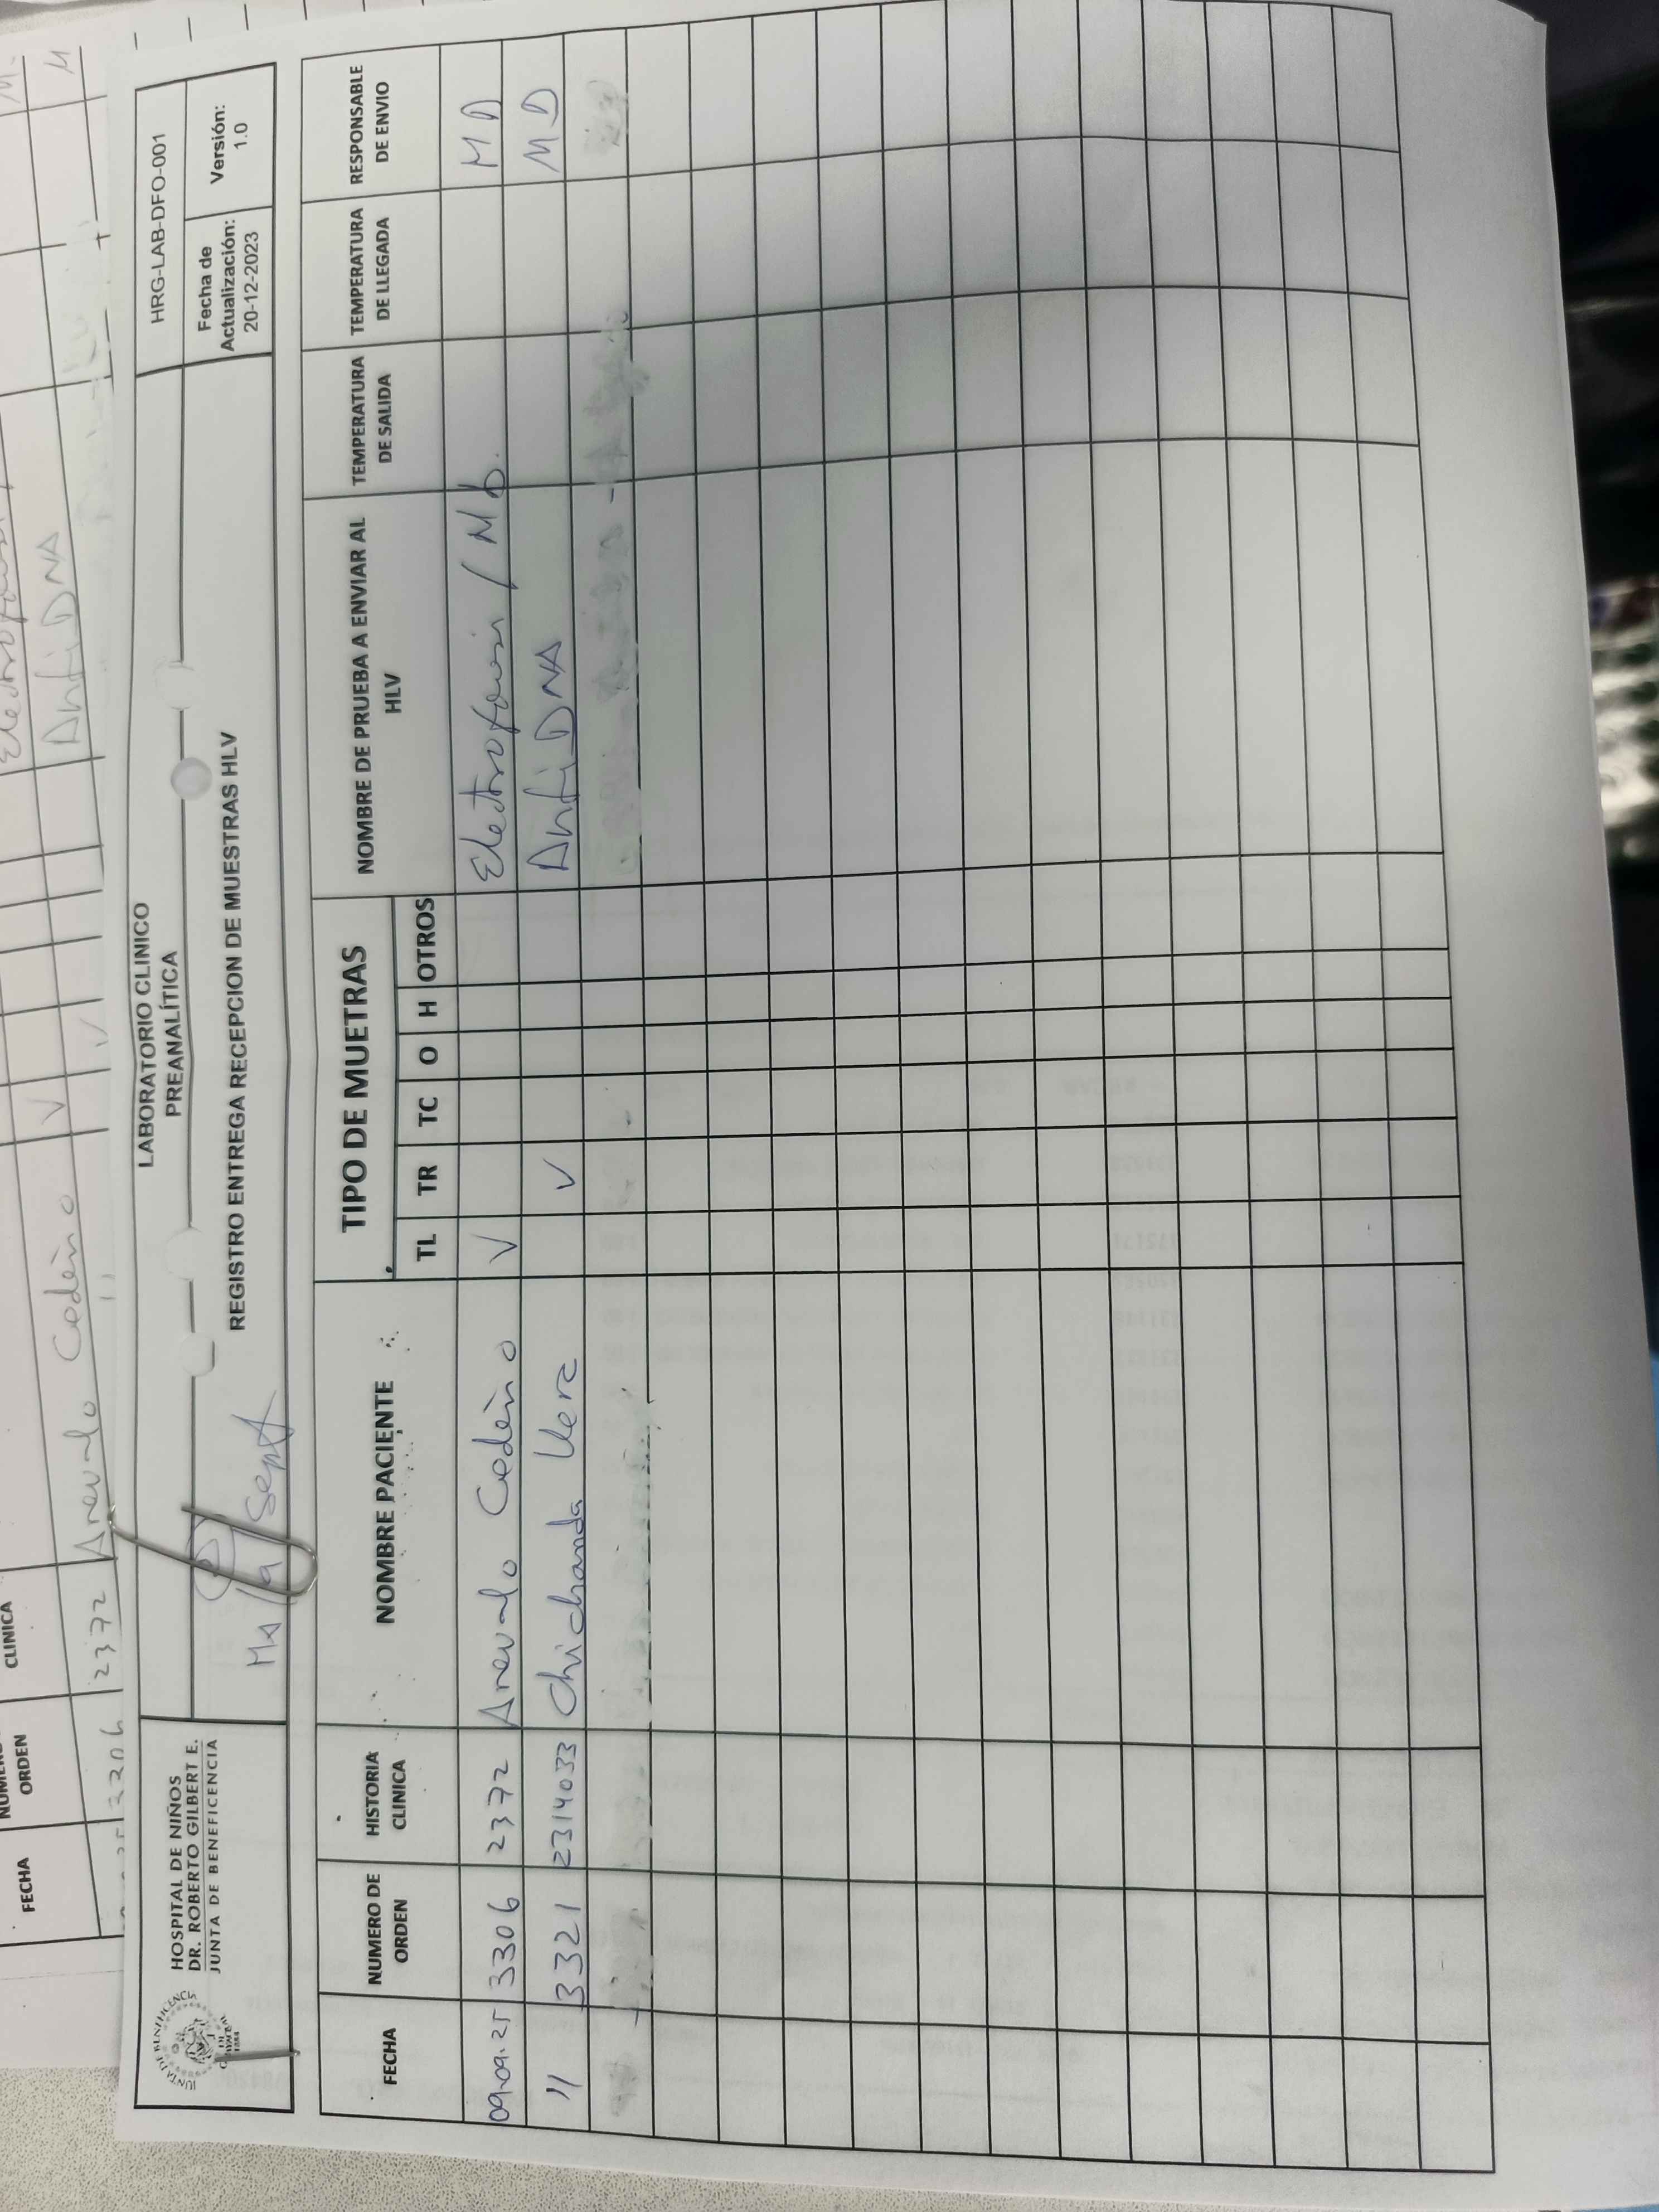 NUMERO
FECHA ORDEN CLINICA
3306 2372 Arevalo Cedeño V
Anti DNA
HOSPITAL DE NIÑOS
DR. ROBERTO GILBERT E.
JUNTA DE BENEFICENCIA
LABORATORIO CLINICO
PREANALÍTICA
REGISTRO ENTREGA RECEPCION DE MUESTRAS HLV
HRG-LAB-DFO-001
Fecha de
Actualización:
20-12-2023
Versión:
1.0
Ma 9 Sept
FECHA
NUMERO DE
ORDEN
HISTORIA
CLINICA
NOMBRE PACIENTE
TIPO DE MUETRAS
TL TR TC O H OTROS
NOMBRE DE PRUEBA A ENVIAR AL
HLV
TEMPERATURA
DE SALIDA
TEMPERATURA
DE LLEGADA
RESPONSABLE
DE ENVIO
09.09.25 3306 2372 Arevalo Cedeño V Electroforesis / Mb. MD
" 3321 2314033 Chichanda Vera V Anti DNA MD